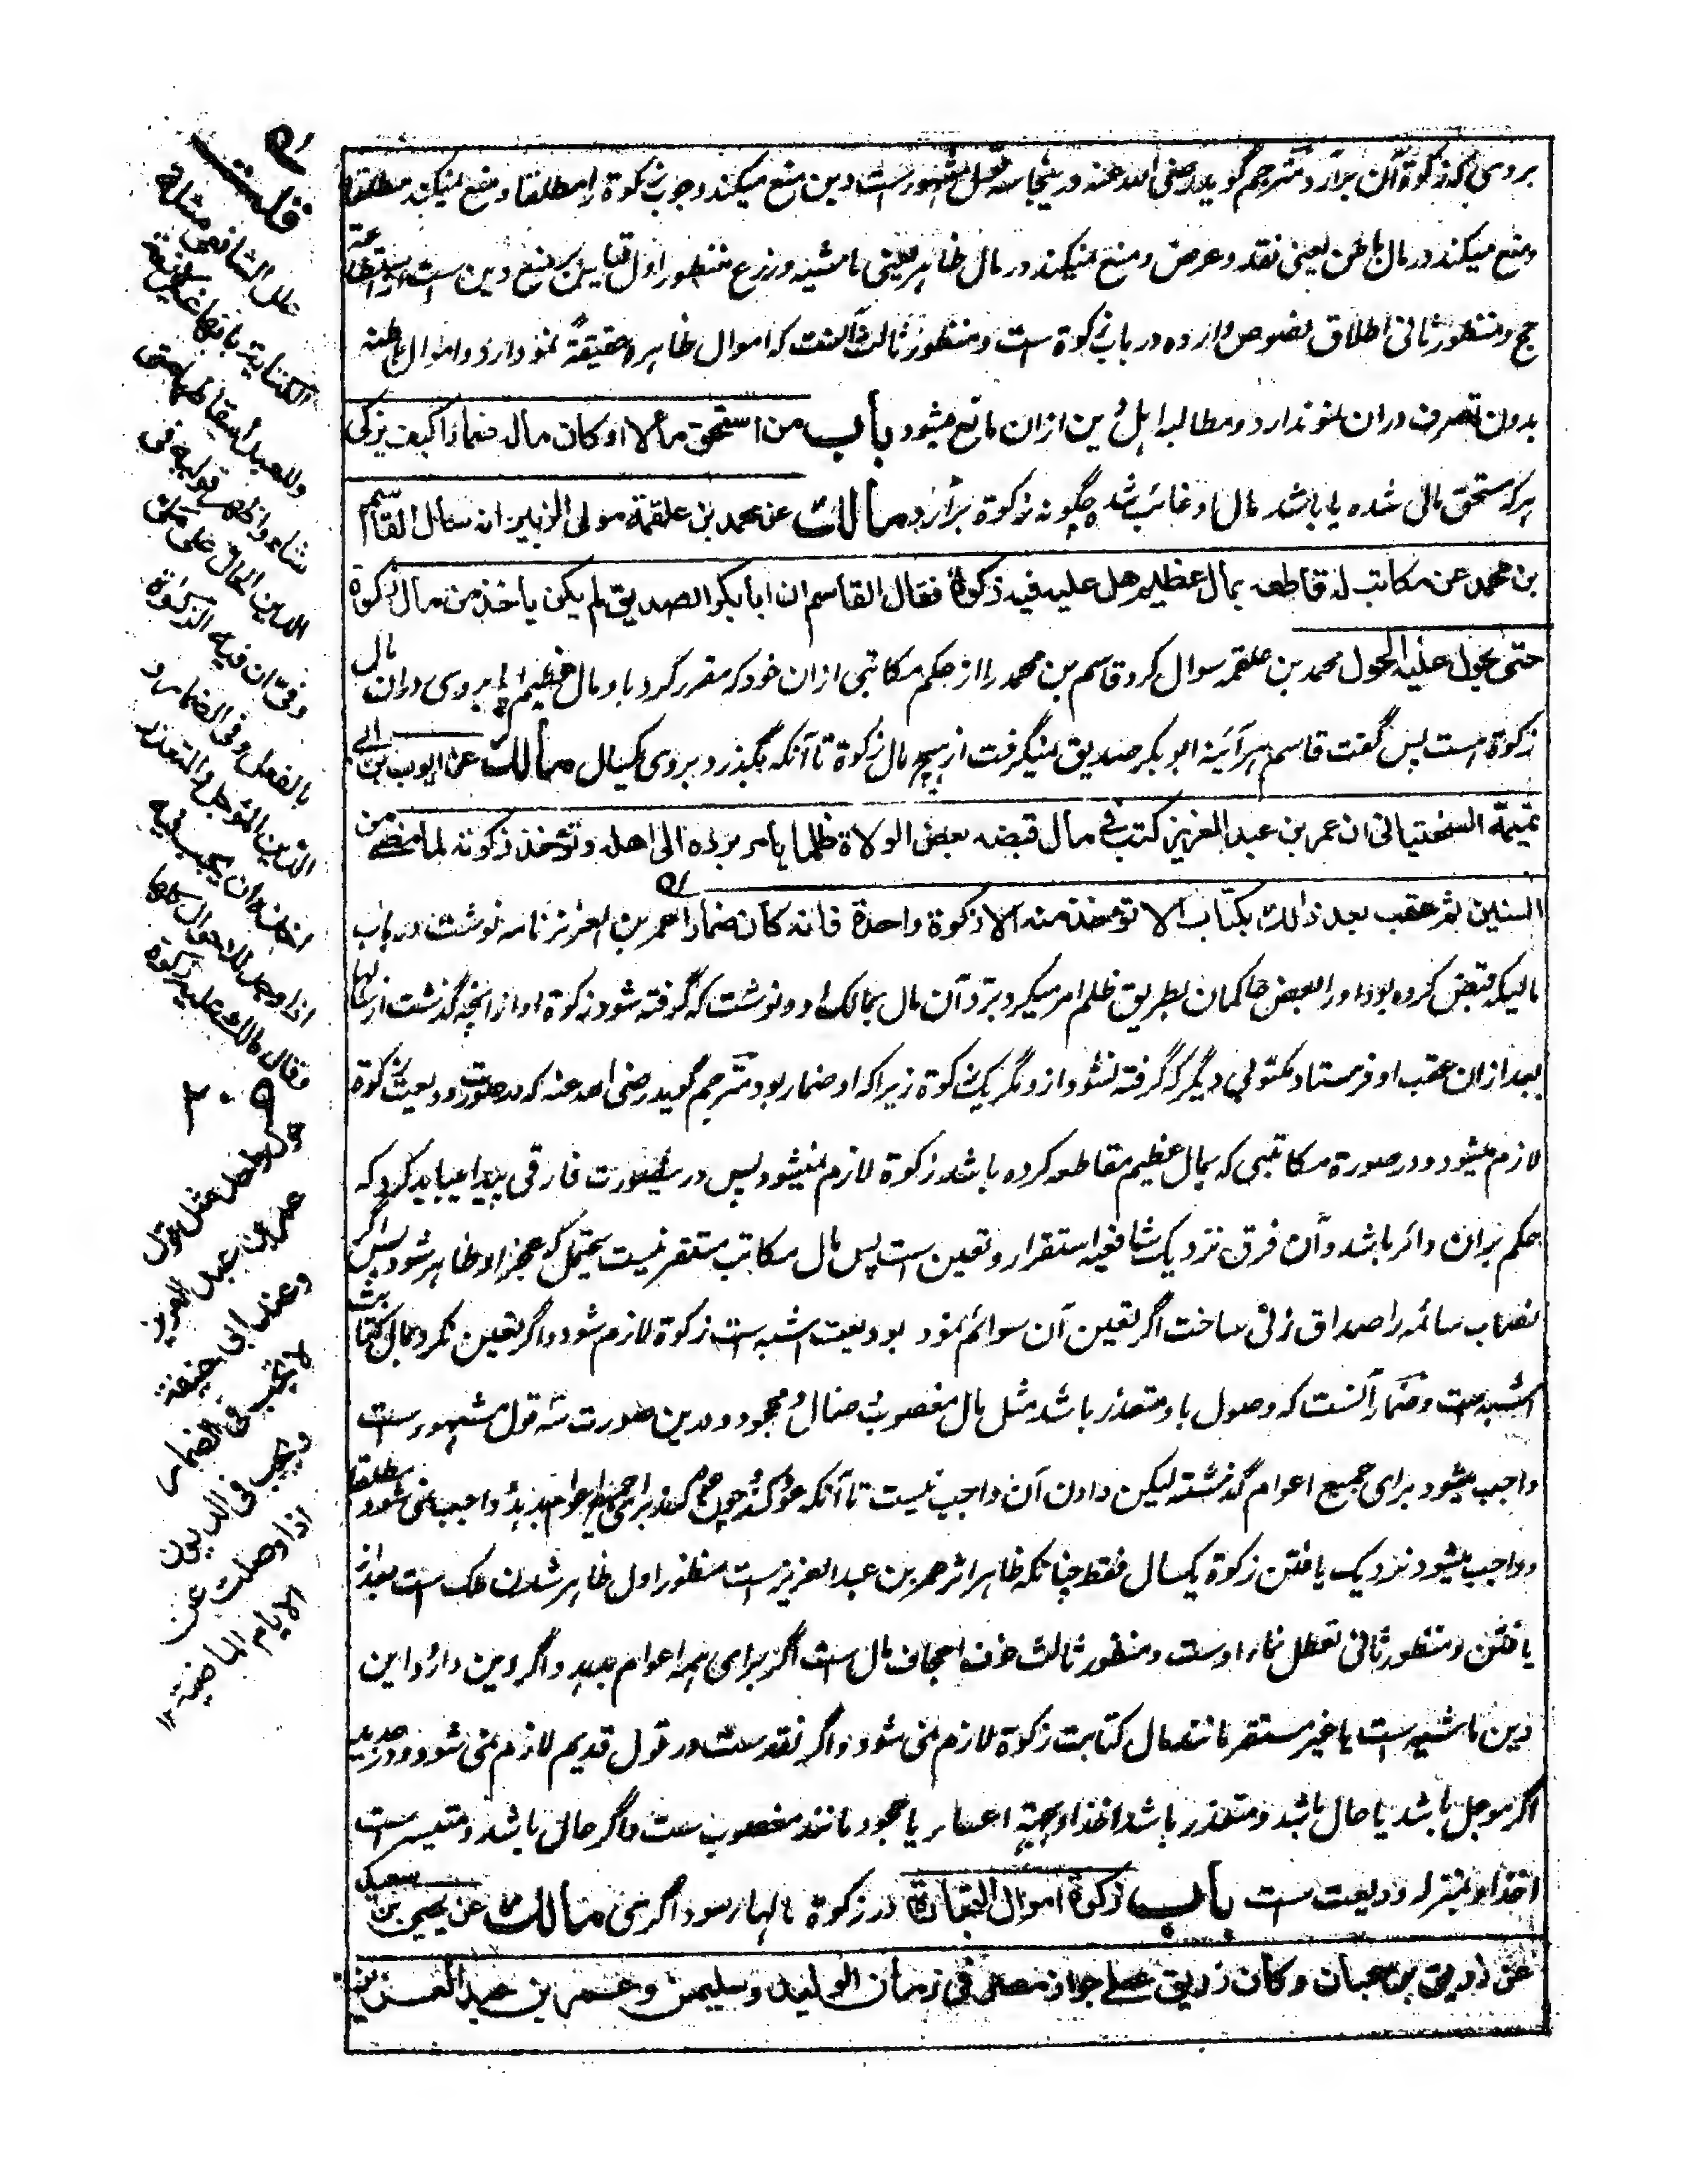 بروی که زکوة آن برآرد مترجم گوید رضی الله عنه درینجا سه قول مشهورست دین منع میکند وجوب زکوة را مطلقا و منع نمیکند مطلقا
و منع میکند در مال باطن یعنی نقد و عرض و منع نمیکند در مال ظاهر یعنی ماشیه و زرع منظور اول قیاس منع دین ست از استطاعة
حج و منظور ثانی اطلاق نصوص وارده در باب زکوة ست و منظور ثالث آنست که اموال ظاهره حقیقةً نمو دارد و اموال باطنه
بدون تصرف دران نمو ندارد و مطالبه اهل دین ازان مانع میشود باب من استحق مالا او کان ماله ضمارا کیف یزکی
هرکه مستحق مالی شده یا باشد مال او غائب شده چگونه زکوة برآرد مالك عن محمد بن علقمة مولی الزبیر انه سأل القاسم
بن محمد عن مکاتب له قاطعه بمال عظیم هل علیه فیه زکوة فقال القاسم ان ابا بکر الصدیق لم یکن یاخذ من مال زکوة
حتی یحول علیه الحول محمد بن علقمه سوال کرد قاسم بن محمد را از حکم مکاتبی ازان خود که مقرر کرد با او مال عظیم آیا بروی دران مال
زکوة هست پس گفت قاسم هرآئینه ابو بکر صدیق نمیگرفت از هیچ مال زکوة تا آنکه بگذرد بروی یکسال مالك عن ایوب بن ابی
تمیمة السختیانی ان عمر بن عبد العزیز کتب فی مال قبضه بعض الولاة ظلما یامر برده الی اهله و تؤخذ زکوته لما مضی من
السنین ثم عقب بعد ذلك بکتاب الا تؤخذ منه الا زکوة واحدة فانه کان ضمارا عمر بن العزیز نامه نوشت در باب
مالیکه قبض کرده بود اورا بعض حاکمان بطریق ظلم امر میکرد برد آن مال بمالک او و نوشت که گرفته شود زکوة او از آنچه گذشت از سالها
بعد ازان عقب او فرستاد مکتوبی دیگر که گرفته نشود ازو مگر یک زکوة زیرا که او ضمار بود مترجم گوید رضی الله عنه که در صورت ودیعت زکوة
لازم میشود و در صورة مکاتبی که بمال عظیم مقاطعه کرده باشد زکوة لازم نمیشود پس درینصورت فارقی پیدا میباید کرد که
حکم بران دائر باشد و آن فرق نزدیک شافعیه استقرار و تعین ست پس مال مکاتب مستقر نیست یحتمل که عجز او ظاهر شود پس اگر
نصاب سائمه را صداق زنی ساخت اگر تعین آن سوائم نمود بودیعت اشبه ست زکوة لازم شود و اگر تعین نکرد بمال کتابت
اشبه ست و ضمار آنست که وصول باو متعذر باشد مثل مال مغصوب و ضال و مجحود و درین صورت سه قول مشهورست
واجب میشود برای جمیع اعوام گذشته لیکن دادن آن واجب نیست تا آنکه عود کند چون عود کند برای جمیع اعوام بدهد و واجب نمی شود مطلقا
و واجب میشود نزدیک یافتن زکوة یکسال فقط چنانکه ظاهر اثر عمر بن عبد العزیز ست منظور اول ظاهر شدن ملک ست بعد از
یافتن و منظور ثانی تعطل نماء اوست و منظور ثالث خوف اجحاف مال ست اگر برای همه اعوام بدهد و اگر دین دارد و این
دین ماشیه ست یا غیر مستقر مانند مال کتابت زکوة لازم نمی شود و اگر نقد ست در قول قدیم لازم نمی شود و در جدید
اگر موجل باشد یا حال باشد و متعذر باشد اخذ او بجهة اعسار یا جحود مانند مغصوب ست و اگر حال باشد و متیسر ست
اخذ او بمنزله ودیعت ست باب زکوة اموال التجارة در زکوة مالهاء سوداگری مالك عن یحیی بن سعید
عن زریق بن حیان و کان زریق علی جواز مصر فی زمان الولید و سلیمن و عمر بن عبد العزیز
قلت
علل الشافعی مسئلة
الکتابة بانها غیر مستقرة
وللعبد اسقاطها متی
شاء واظهر قولیه فی
الدین الحال علی ملی
وفی ان فیه الزکوة
بالفعل وفی الضمار و
الدین المؤجل والمتعذر
اخذه ان یجب فیه
اذا وصل للاحوال کلها
وقال مالك علیه زکوة
٢٠٩
حول واحد مثل قول
عمر بن عبد العزیز
وعند ابی حنیفة
لا تجب فی الضمار
ویجب فی الدیون
اذا وصلت عن
الایام الماضیة ١٢